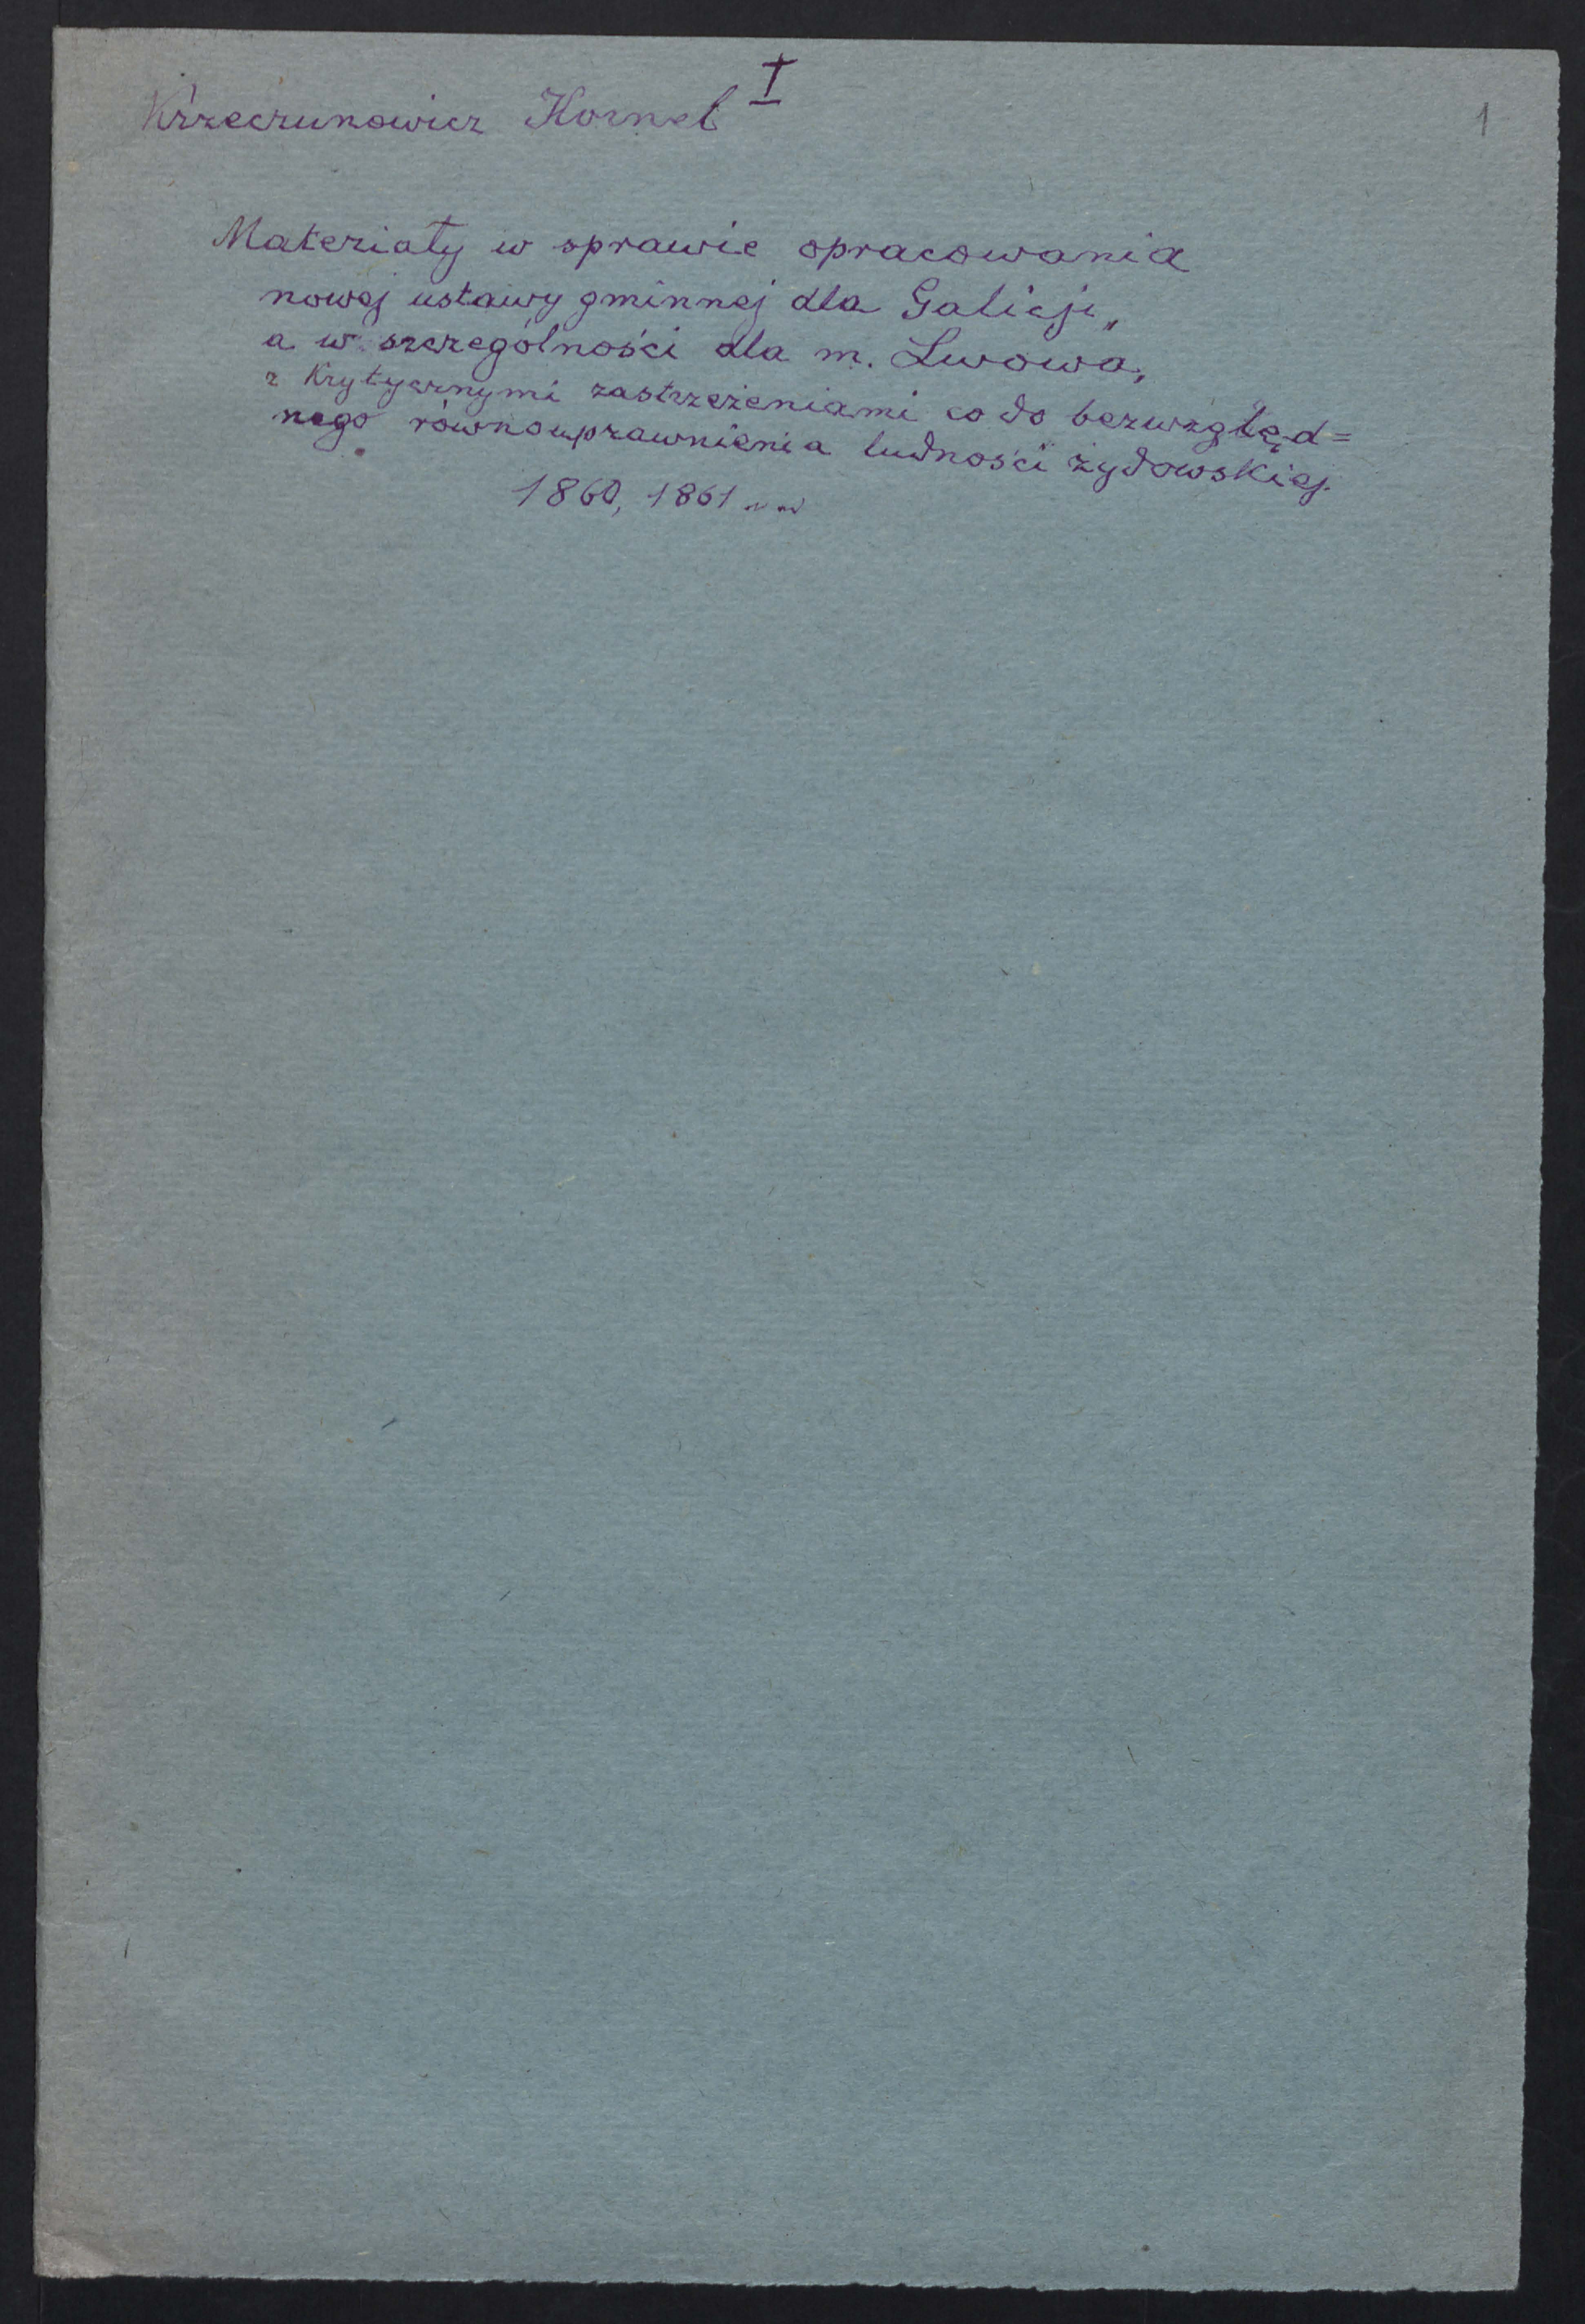 I
Krzeczunowicz Kornel
1
Materiały w sprawie opracowania
nowej ustawy gminnej dla Galicji,
a w szczególności dla m. Lwowa,
z krytycznymi zastrzeżeniami co do bezwzględ=
nego równouprawnienia ludności żydowskiej.
1860, 1861